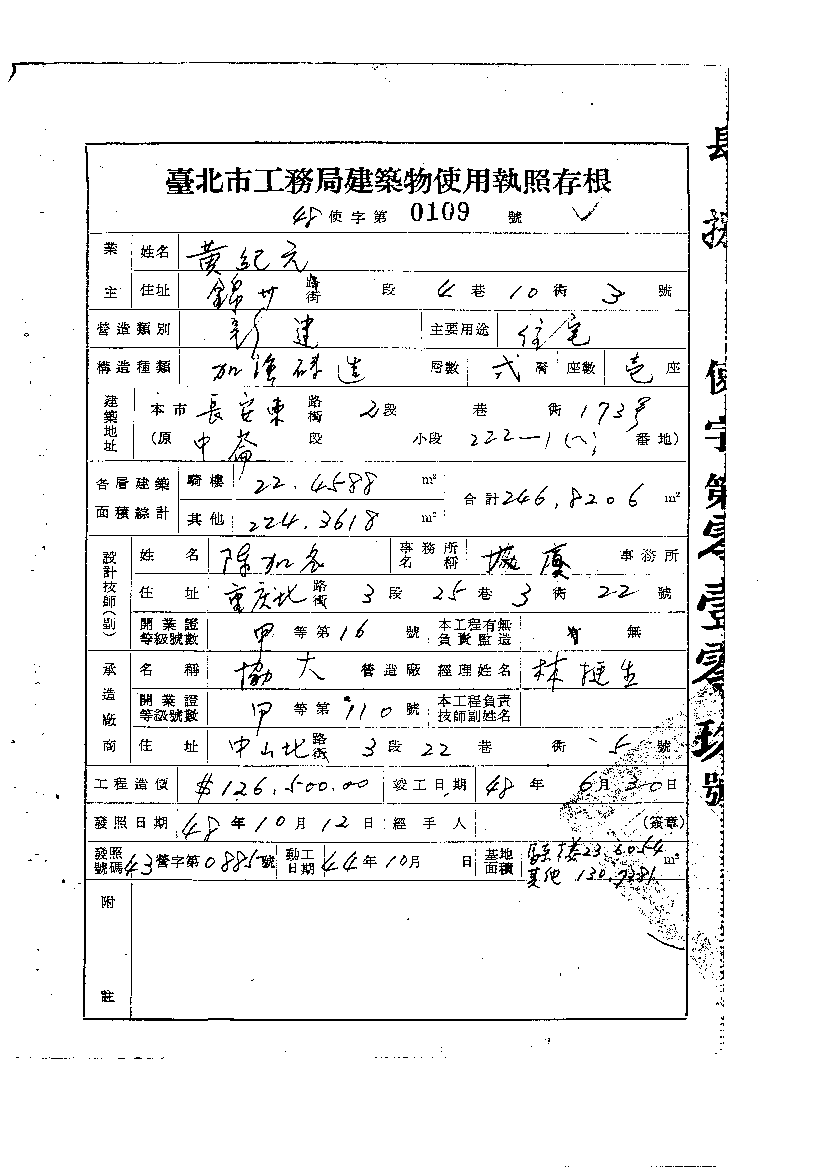 臺北市工務局建築物使用執照存根
48 使字第 0109 號
業主 姓名 黃紀元
住址 錦州 路街 段 4 巷 10 衖 3 號
營造類別 新建 主要用途 住宅
構造種類 加強磚造 層數 弍層 座數 壱座
建築地址 本市 長安東 路街 2段 巷 衖 173号
(原 中崙 段 小段 222—1 番地)
各層建築面積綜計 騎樓 22.4588 m² 合計 246.8206 m²
其他 224.3618 m²
設計技師(副) 姓名 陳加冬 事務所名稱 事務所
住址 重庆北 路街 3 段 25 巷 3 衖 22 號
開業證等級號數 甲 等第 16 號 本工程有無負責監造 有 無
承造廠商 名稱 協大 營造廠 經理姓名 林挺生
開業證等級號數 甲 等第 110 號 本工程負責技師副姓名
住址 中山北 路街 3 段 22 巷 衖 5 號
工程造價 $126,500.00 竣工日期 48 年 6 月 30 日
發照日期 48 年 10 月 12 日 經手人 (簽章)
發照號碼 43 營字第 0885 號 動工日期 44 年 10 月 日 基地面積 騎樓 23.6054 m²
其他
附註
使字第零壹零玖號